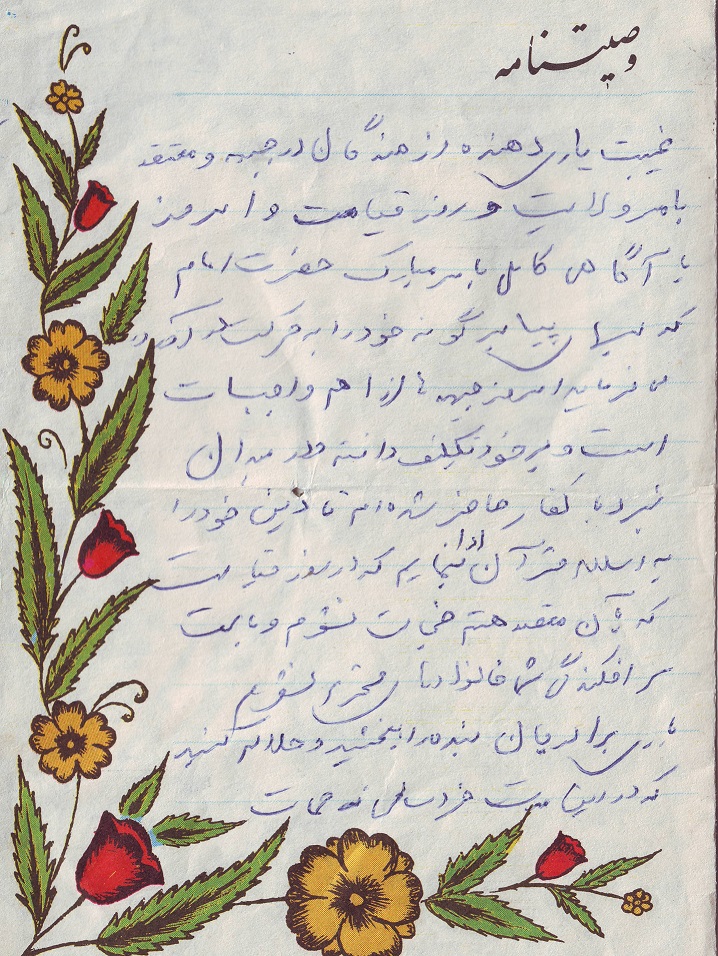 وصیتنامه
غیبت یاری دهنده رزمندگان در جبهه و معتقد
بامر ولایت و روز قیامت و امروز
با آگاهی کامل بامر مبارک حضرت امام
که پیامبر گونه خود را به
می فرماید امروز جبهه ها از اهم واجبات
است و بر خود تکلیف دانسته و در میدان
نبرد با کفار حاضر شده ام تا دین خود را
به اسلام و قرآن ادا نمایم که در روز قیامت
که به آن معتقد هستم خجالت نشوم و باعث
سر افکندگی شما خانواده های محترم نشویم
مادری برادر جان بنده را ببخشید و حلالم کنید
که در این